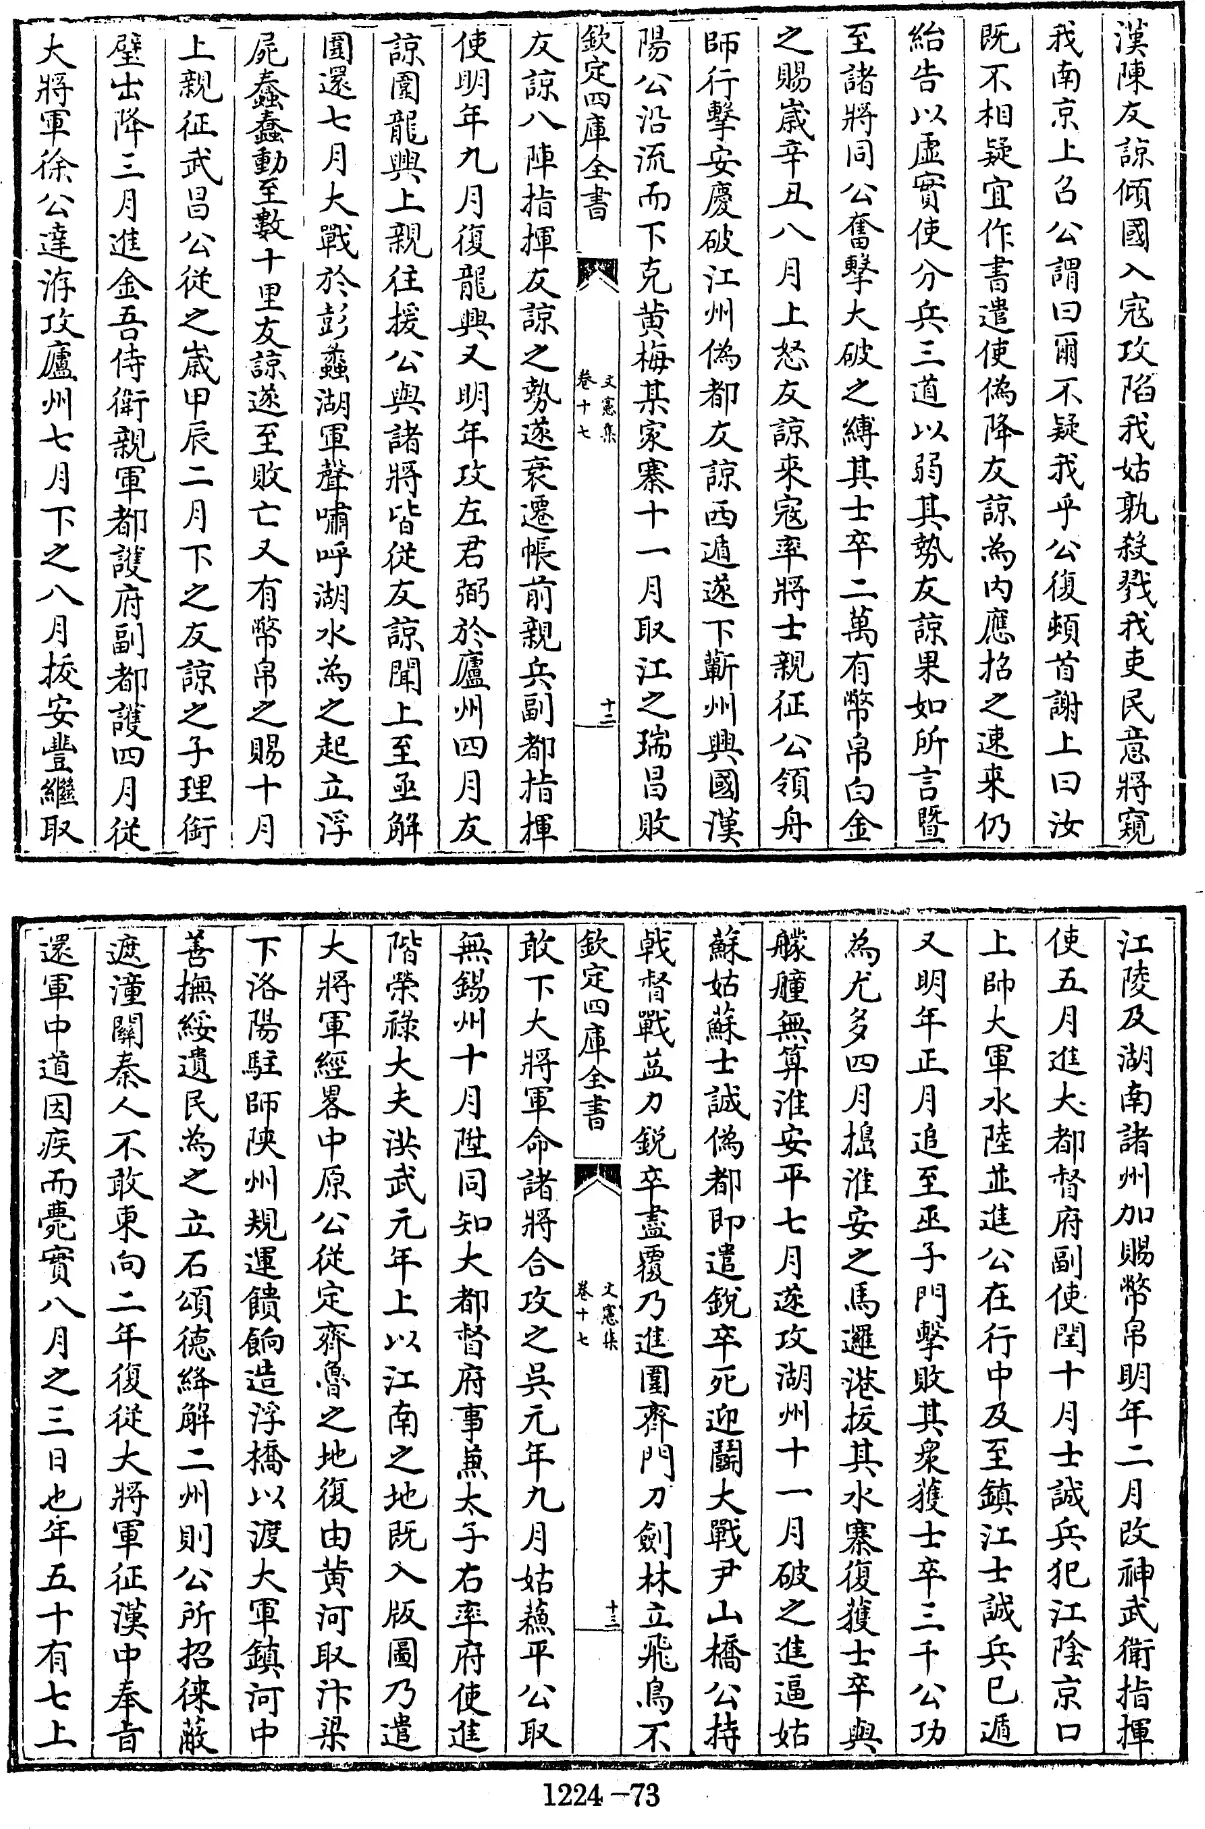 漢陳友諒傾國入宼攻陷我姑孰殺戮我吏民意將窺
我南京上召公謂曰爾不疑我乎公復頓首謝上曰汝
既不相疑宜作書遣使偽降友諒為內應招之速來仍
紿告以虛實使分兵三道以弱其勢友諒果如所言暨
至諸將同公奮擊大破之縛其士卒二萬有幣帛白金
之賜嵗辛丑八月上怒友諒來宼率將士親征公領舟
師行擊安慶破江州偽都友諒西遁遂下蘄州興國漢
陽公沿流而下克黄梅某家寨十一月取江之瑞昌敗
欽定四庫全書
文憲集
卷十七
十二
友諒八陣指揮友諒之勢遂衰遷帳前親兵副都指揮
使明年九月復龍興又明年攻左君弼於廬州四月友
諒圍龍興上親往援公與諸將皆從友諒聞上至亟解
圍還七月大戰於彭蠡湖軍聲嘯呼湖水為之起立浮
屍蠢蠢動至數十里友諒遂至敗亡又有幣帛之賜十月
上親征武昌公從之嵗甲辰二月下之友諒之子理銜
璧出降三月進金吾侍衛親軍都護府副都護四月從
大將軍徐公達洊攻廬州七月下之八月拔安豐繼取
江陵及湖南諸州加賜幣帛明年二月改神武衛指揮
使五月進大都督府副使閏十月士誠兵犯江陰京口
上帥大軍水陸並進公在行中及至鎮江士誠兵已遁
又明年正月追至巫子門擊敗其衆獲士卒三千公功
為尤多四月搗淮安之馬邏港拔其水寨復獲士卒與
艨艟無算淮安平七月遂攻湖州十一月破之進逼姑
蘇姑蘇士誠偽都即遣銳卒死迎鬭大戰尹山橋公持
戟督戰益力銳卒盡覆乃進圍齊門刀劍林立飛鳥不
欽定四庫全書
文憲集
卷十七
十三
敢下大將軍命諸將合攻之吳元年九月姑蘓平公取
無錫州十月陞同知大都督府事兼太子右率府使進
階榮祿大夫洪武元年上以江南之地既入版圖乃遣
大將軍經畧中原公從定齊魯之地復由黄河取汴梁
下洛陽駐師陜州規運饋餉造浮橋以渡大軍鎮河中
善撫綏遺民為之立石頌德絳解二州則公所招徠蔽
遮潼關秦人不敢東向二年復從大將軍征漢中奉旨
還軍中道因疾而薨實八月之三日也年五十有七上
1224-73